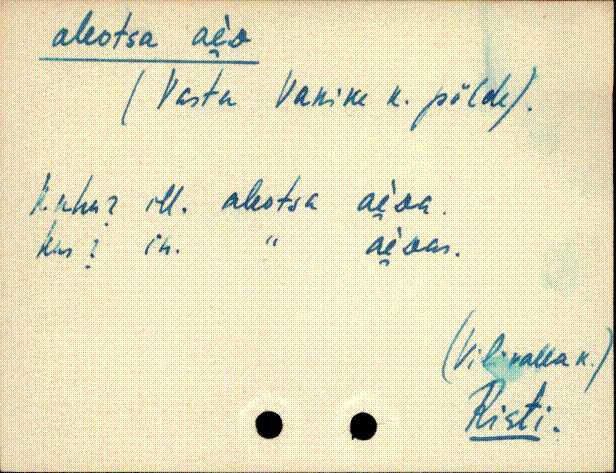 alotsa aè̯o
(Vastu Vanina k. põlde).
kuhu? ill. alotsa aè̯oa.
kus? in. " aè̯oas.
(Vilivalla k.)
Risti.